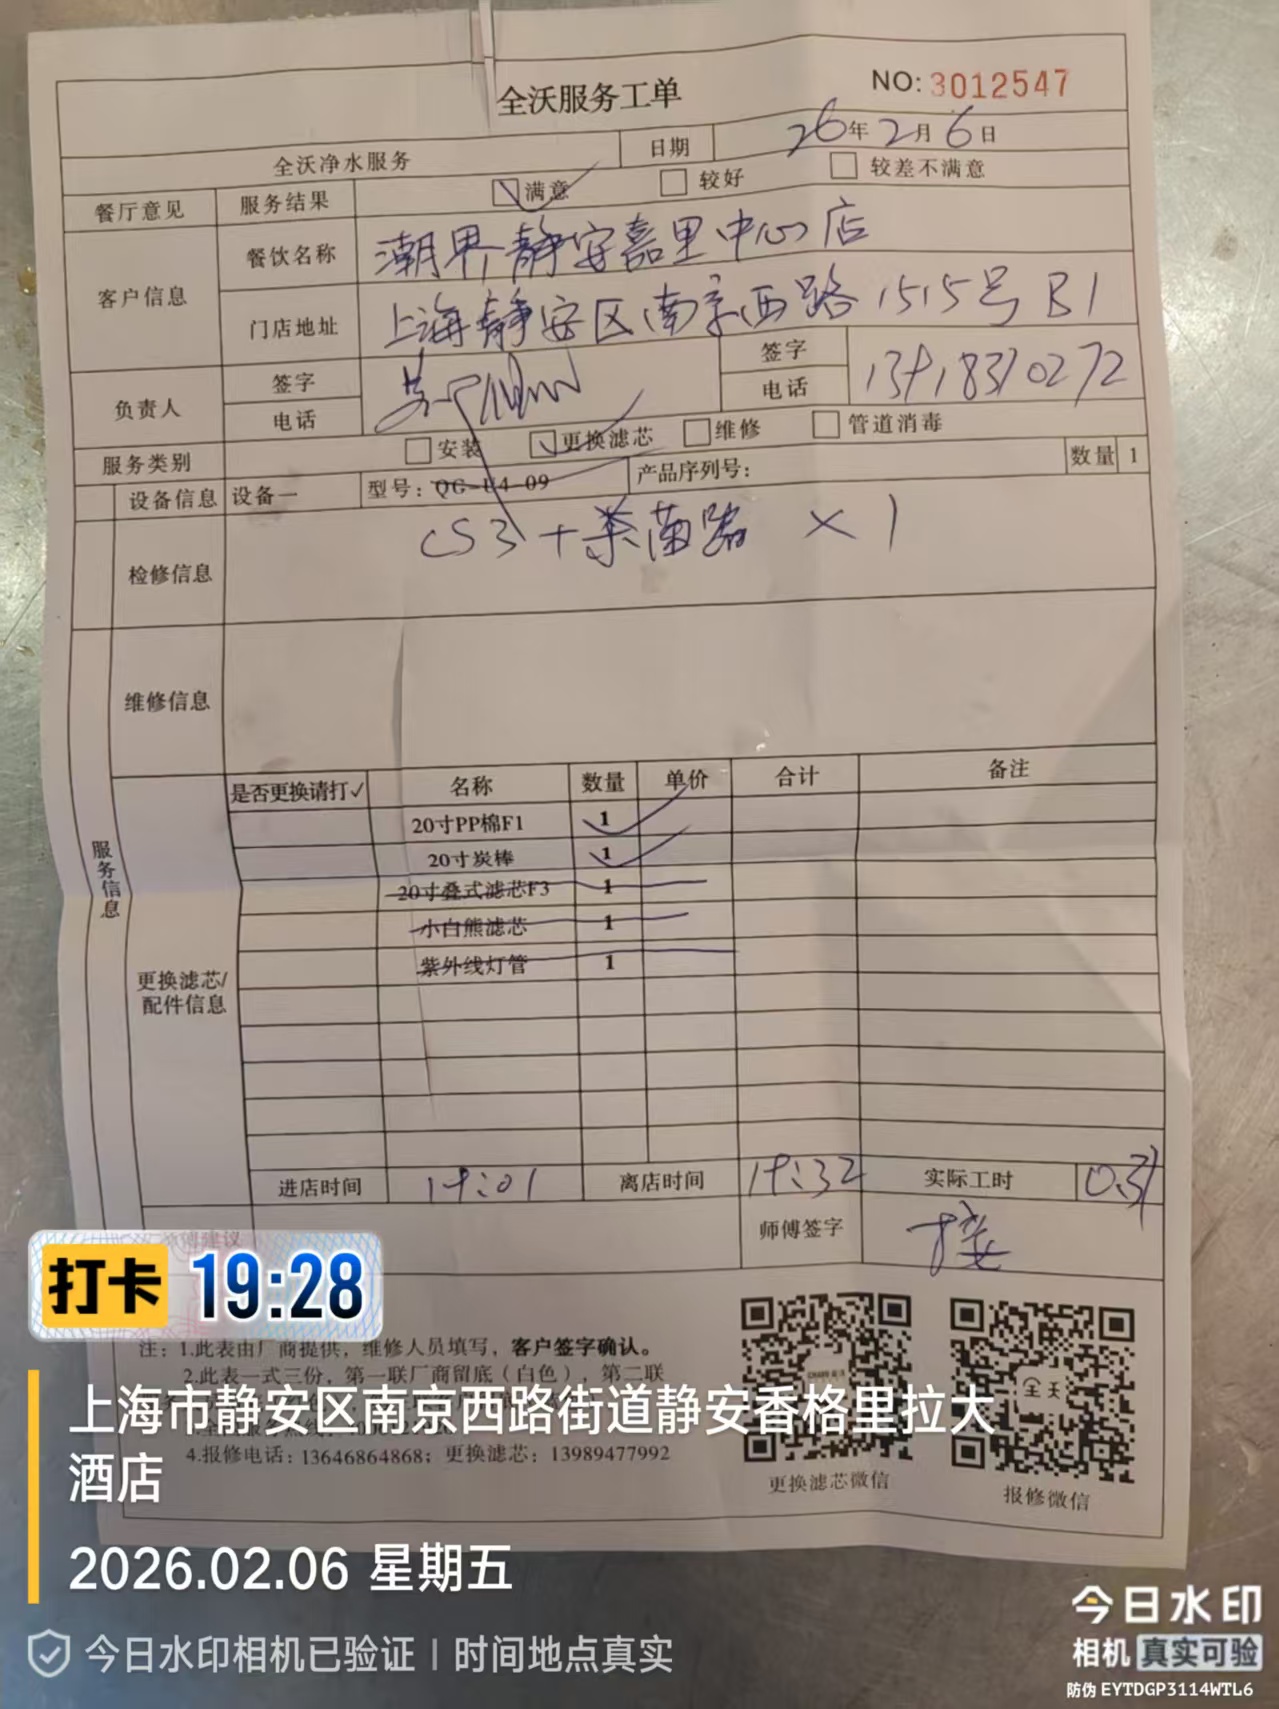 全沃服务工单
NO: 3012547
全沃净水服务 日期 26年2月6日
餐厅意见 服务结果 满意 较好 较差不满意
客户信息 餐饮名称 潮界静安嘉里中心店
门店地址 上海静安区南京西路1515号B1
负责人 签字 签字
电话 电话 13918310272
服务类别 安装 更换滤芯 维修 管道消毒
设备信息 设备一 型号: QG-U4-09 产品序列号: 数量 1
检修信息 CS3+杀菌器 ×1
维修信息
服务信息
更换滤芯/配件信息
是否更换请打✓ 名称 数量 单价 合计 备注
20寸PP棉F1 1
20寸炭棒 1
20寸叠式滤芯F3 1
小白熊滤芯 1
紫外线灯管 1
进店时间 19:01 离店时间 19:32 实际工时
师傅签字
打卡 19:28
注: 1.此表由厂商提供, 维修人员填写, 客户签字确认。
2.此表一式三份, 第一联厂商留底(白色), 第二联
4.报修电话: 13646864868; 更换滤芯: 13989477992
更换滤芯微信 报修微信
上海市静安区南京西路街道静安香格里拉大
酒店
2026.02.06 星期五
今日水印相机已验证 | 时间地点真实
今日水印
相机 真实可验
防伪 EYTDGP3114WTL6